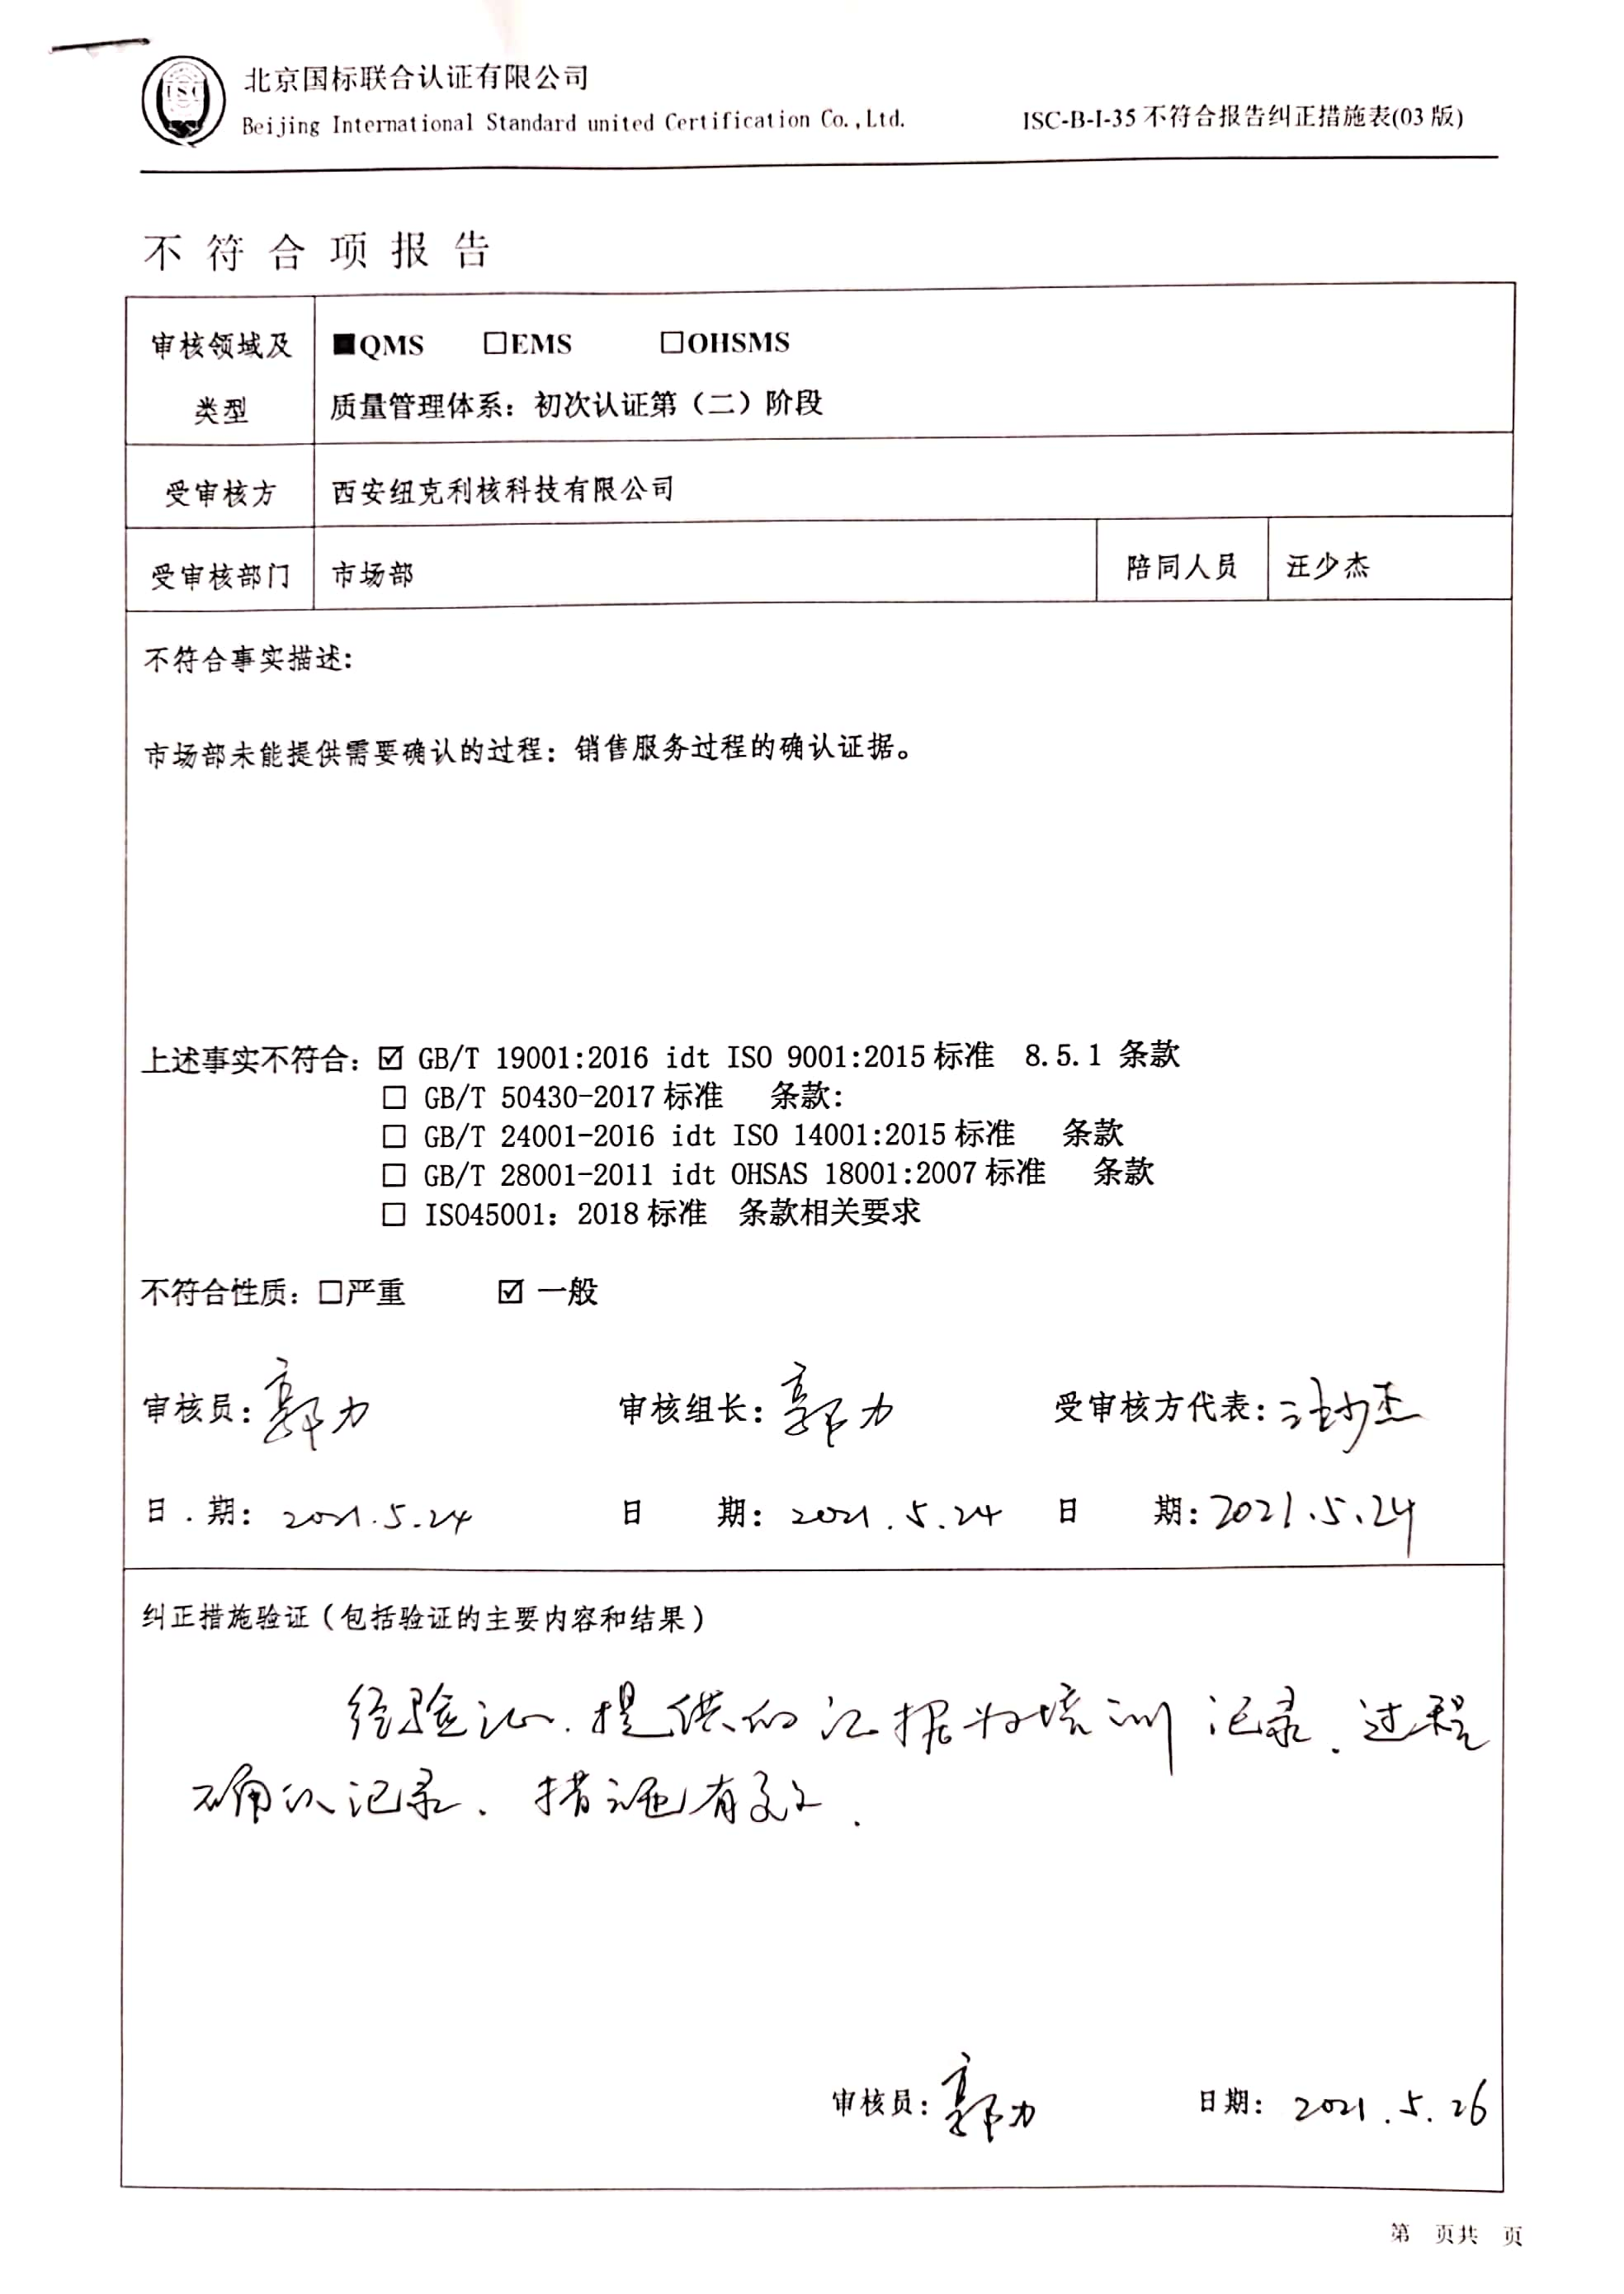 北京国标联合认证有限公司
Beijing International Standard united Certification Co.,Ltd.
ISC-B-I-35 不符合报告纠正措施表(03 版)
不符合项报告
审核领域及类型
■QMS □EMS □OHSMS
质量管理体系：初次认证第（二）阶段
受审核方 西安纽克利核科技有限公司
受审核部门 市场部 陪同人员 汪少杰
不符合事实描述：
市场部未能提供需要确认的过程：销售服务过程的确认证据。
上述事实不符合：☑ GB/T 19001:2016 idt ISO 9001:2015 标准 8.5.1 条款
□ GB/T 50430-2017 标准 条款：
□ GB/T 24001-2016 idt ISO 14001:2015 标准 条款
□ GB/T 28001-2011 idt OHSAS 18001:2007 标准 条款
□ ISO45001：2018 标准 条款相关要求
不符合性质：□严重 ☑ 一般
审核员：郭力 审核组长：郭力 受审核方代表：汪少杰
日.期：2021.5.24 日 期：2021.5.24 日 期：2021.5.24
纠正措施验证（包括验证的主要内容和结果）
经验证.提供的证据为培训记录.过程
确认记录.措施有效.
审核员：郭力 日期：2021.5.26
第 页共 页